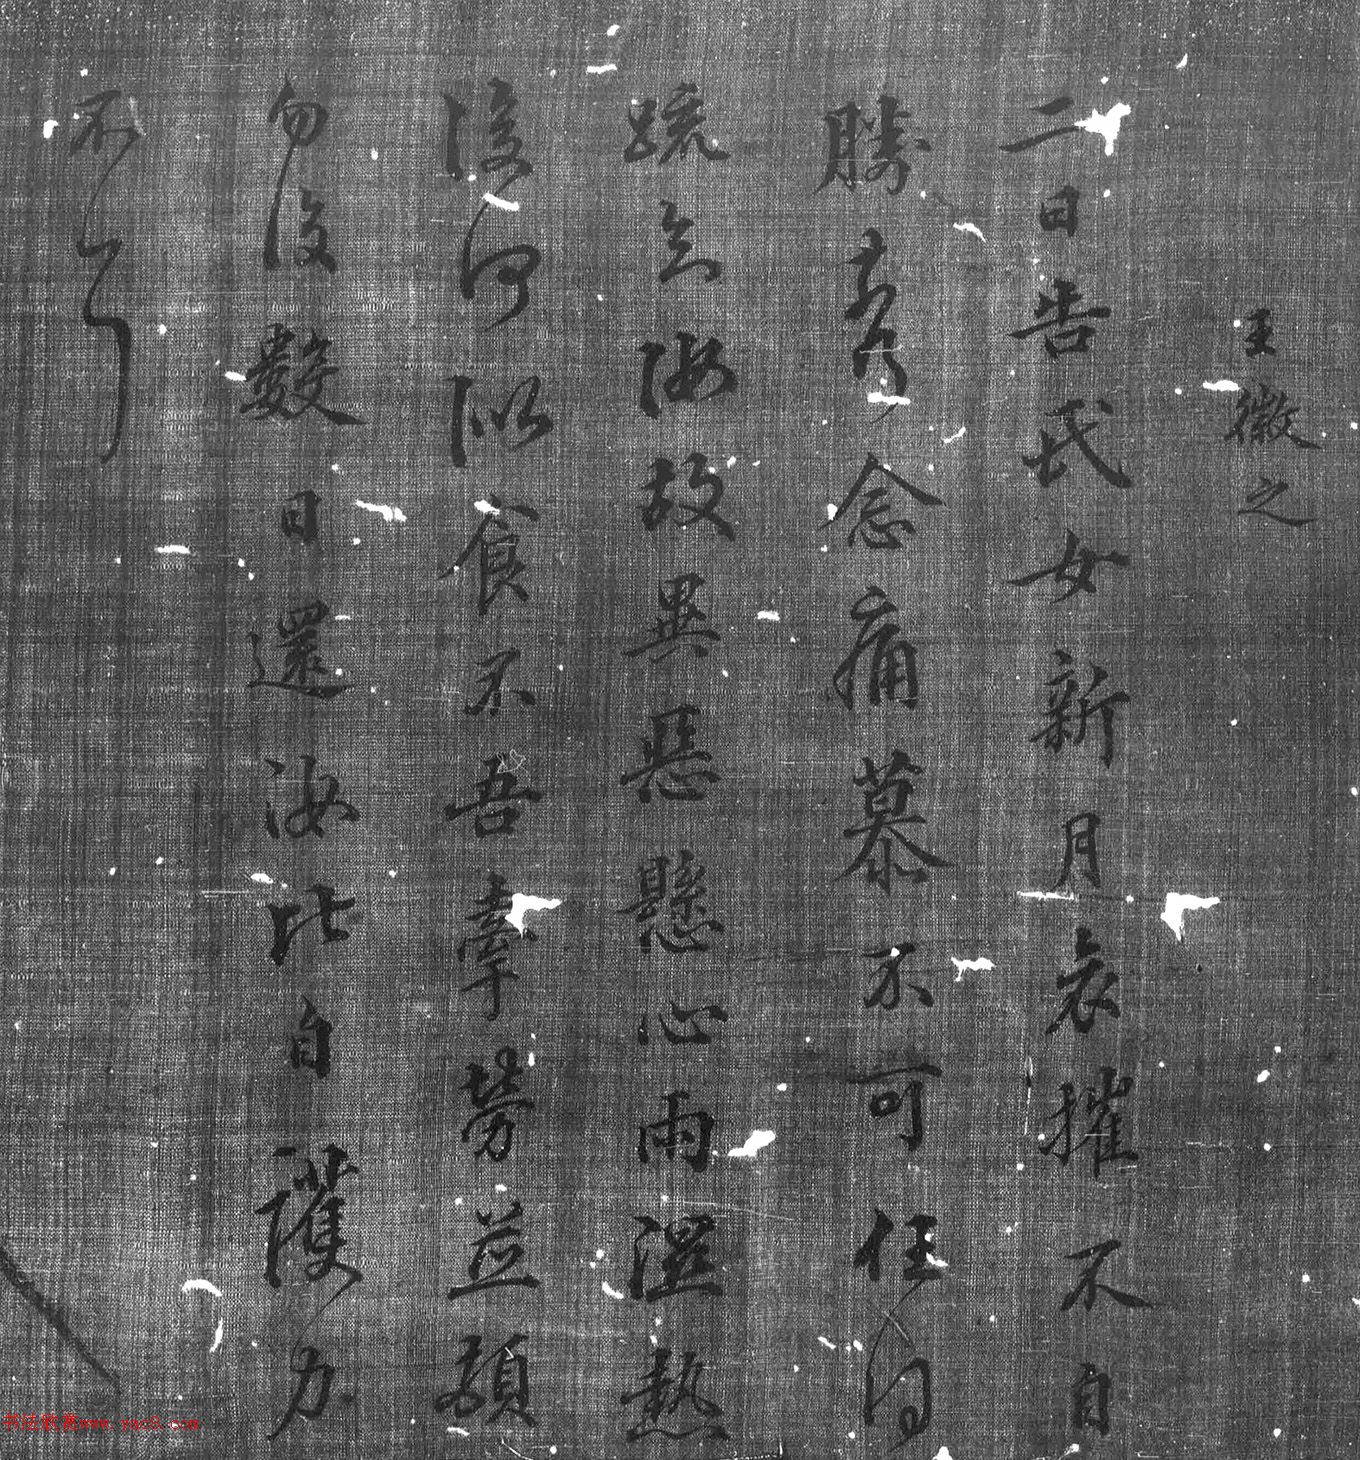 王徽之
二日告氏女新月哀摧不自
勝奈何念痛慕不可任得
疏知汝故異惡懸心雨濕熱
復何似食不吾牽勞並頓
勿復數日還汝比自護力
不
www.yac8.com